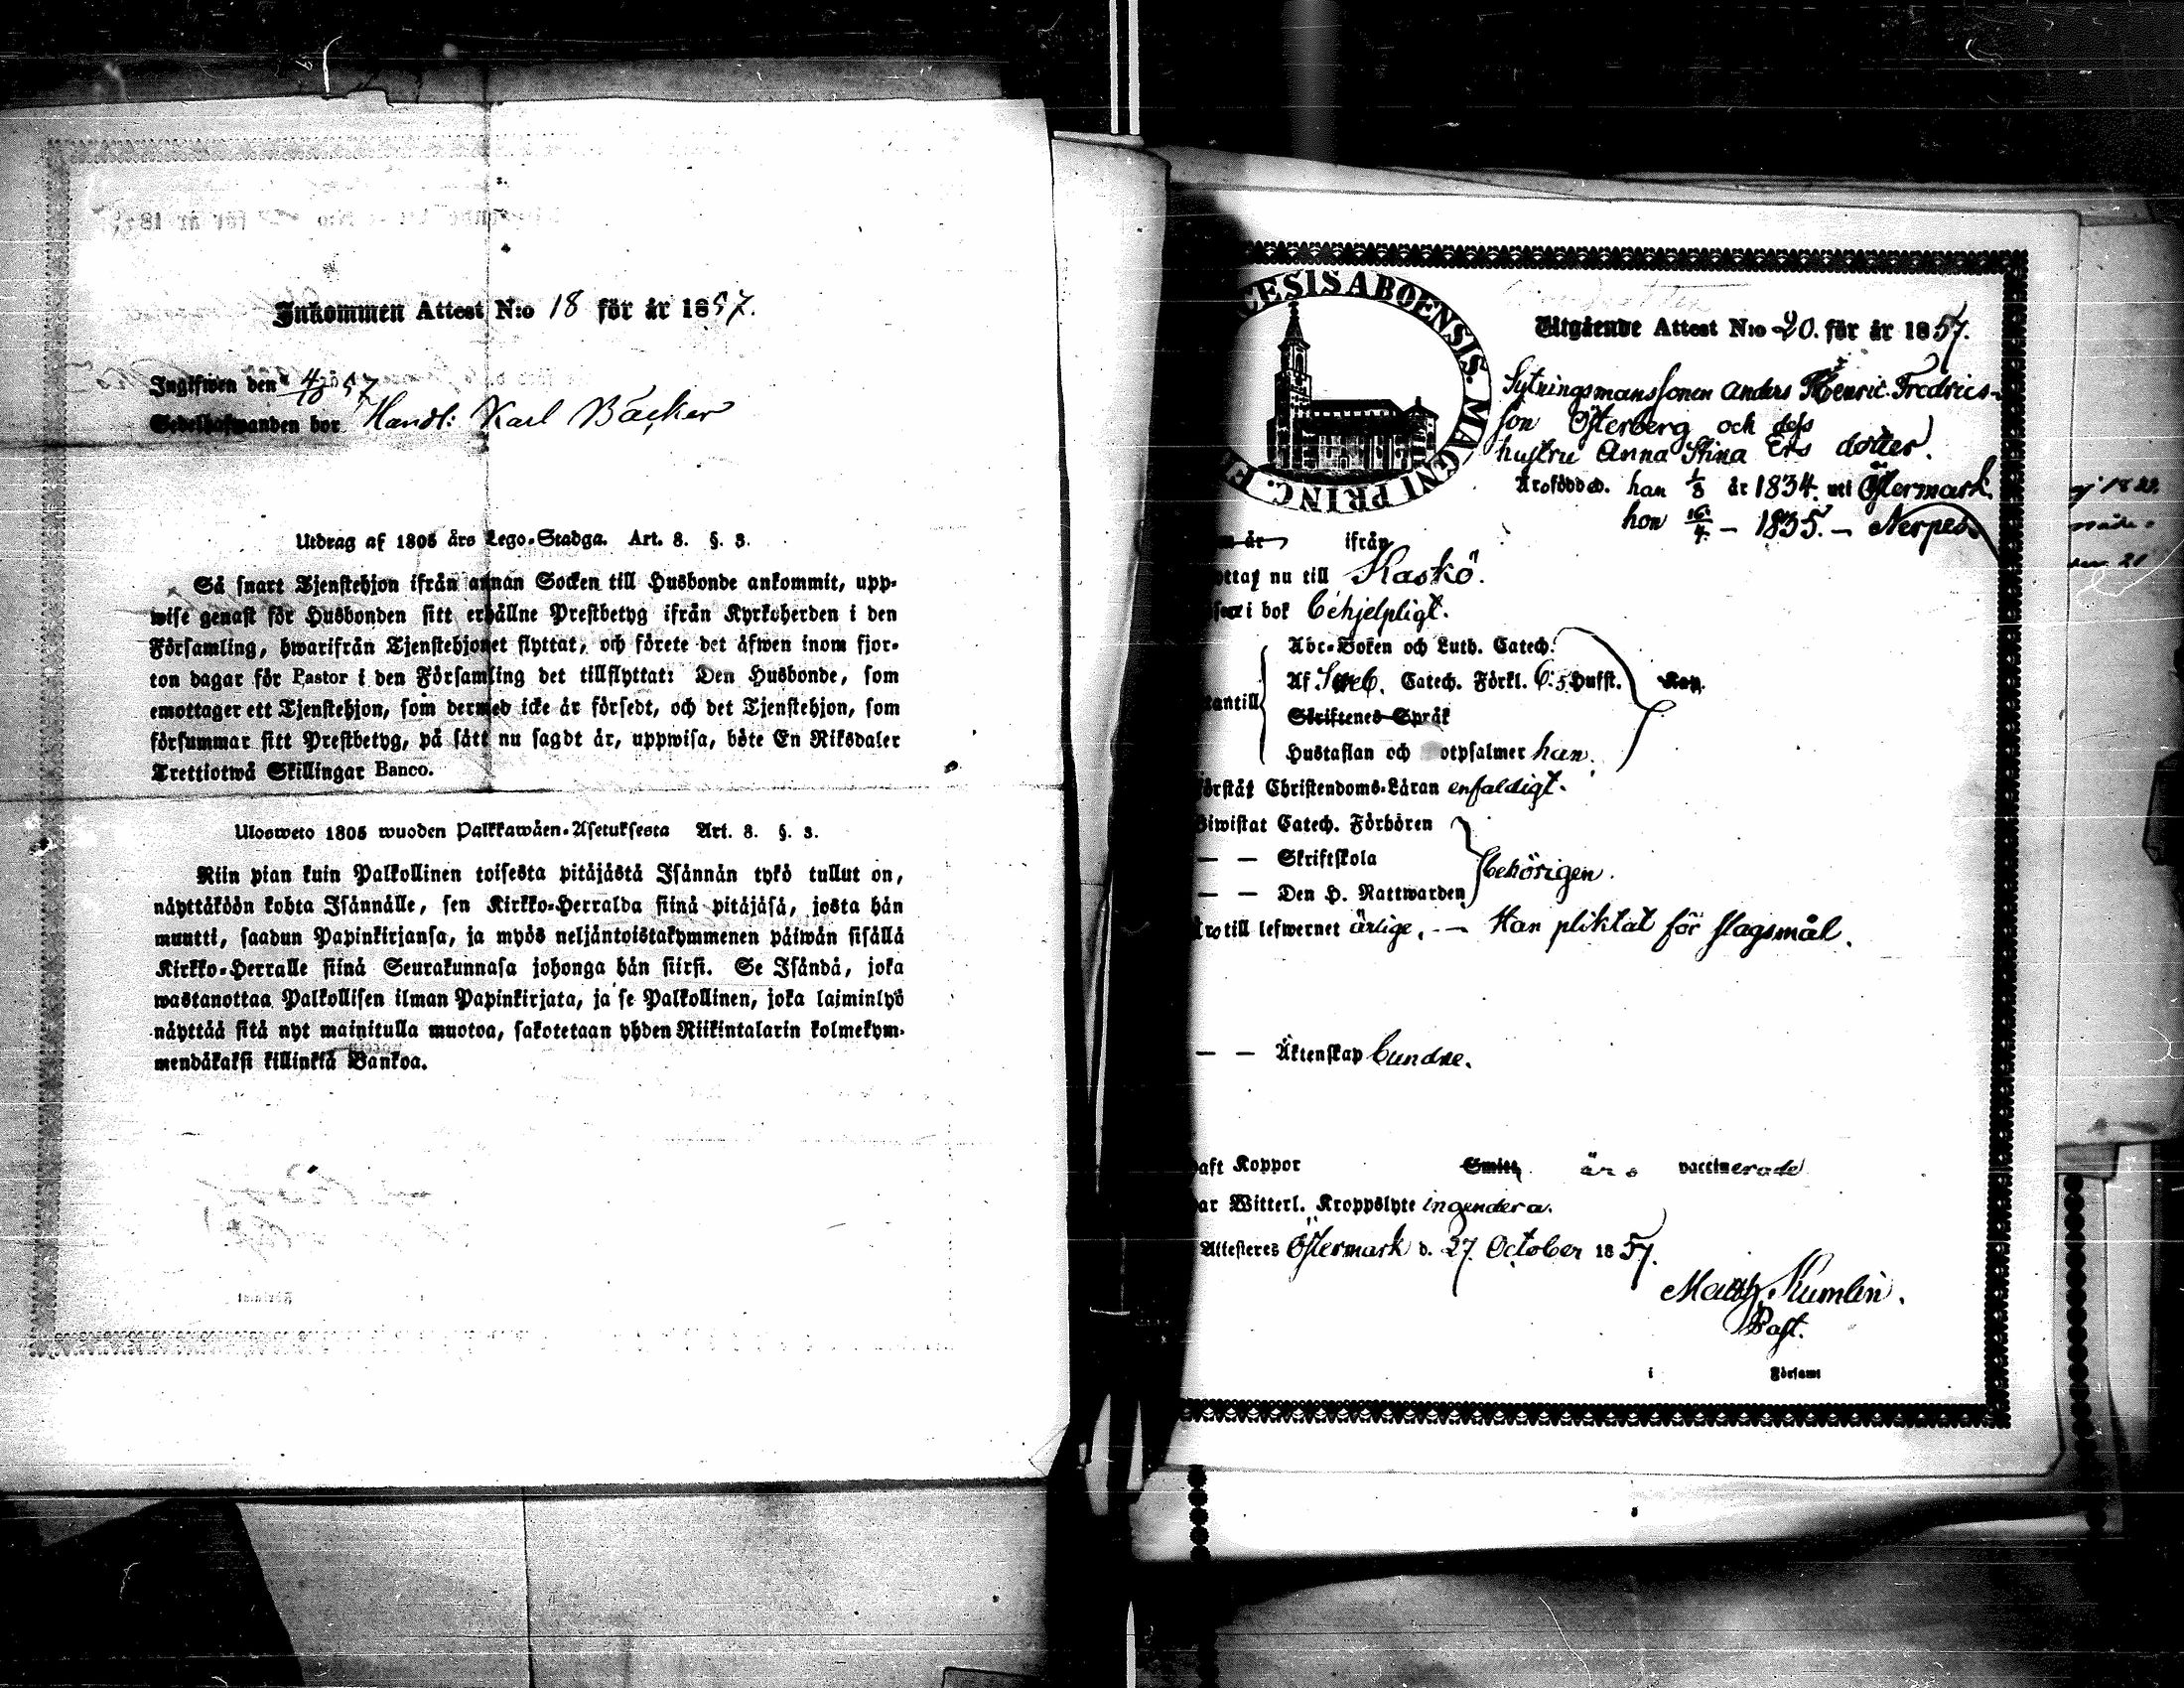 Inkommen Attest N:o 18 för år 1857.
Ingifwen den 4/10 57
Sedelhafwanden bor Handl: Karl Bäcker
Utdrag af 1805 års Lego-Stadga. Art. 8. §. 3.
Så snart Tjenstehjon ifrån annan Socken till Husbonde ankommit, upp-
wise genast för Husbonden sitt erhållne Prestbetyg ifrån Kyrkoherden i den
Församling, hwarifrån Tjenstehjonet flyttat, och förete det äfwen inom fjor-
ton dagar för Pastor i den Församling det tillflyttat: Den Husbonde, som
emottager ett Tjenstehjon, som dermed icke är försedt, och det Tjenstehjon, som
försummar sitt Prestbetyg, på sätt nu sagdt är, uppwisa, böte En Riksdaler
Trettiotwå Skillingar Banco.
Ulosweto 1805 wuoden Palkkawäen-Asetuksesta Art. 8. §. 3.
Niin pian kuin Palkollinen toisesta pitäjästä Isännän tykö tullut on,
näyttäköön kohta Isännälle, sen Kirkko-Herralda siinä pitäjäsä, josta hän
muutti, saadun Papinkirjansa, ja myös neljäntoistakymmenen päiwän sisällä
Kirkko-Herralle siinä Seurakunnasa johonga hän siirsi. Se Isändä, joka
wastanottaa Palkollisen ilman Papinkirjata, ja se Palkollinen, joka laiminlyö
näyttää sitä nyt mainitulla muotoa, sakotetaan yhden Riikintalarin kolmekym-
mendäkaksi killinkiä Bankoa.
CESIS ABOENSIS. MAGNI PRINC.
Utgående Attest N:o 20. för år 1857.
Sytningsmanssonen Anders Henric Fredrics-
son Österberg och dess
hustru Anna Stina Ers dotter.
Äro födde. han 1/8 år 1834. uti Östermark.
hon 16/4 – 1835. – Nerpes.
år ifrån
nu till Kaskö.
i bok behjelpligt.
Abc-Boken och Luth. Catech.
Af Sveb. Catech. Förkl. 6: 5 Hufst. Kan.
Skriftenes Språk
Hustaflan och otpsalmer han.
Förstår Christendoms-Läran enfaldigt.
Biwistat Catech. Förhören
— — Skriftskola
behörigen.
— — Den H. Nattwarden
Äro till lefwernet ärlige. — Han pliktat för slagsmål.
— — Äktenskap bundne.
haft Koppor Smitt äro vaccinerade
har Witterl. Kroppslyte ingendera.
Attesteres Östermark d. 27. October 1857.
Matth. Kumlin.
Past.
i Församl